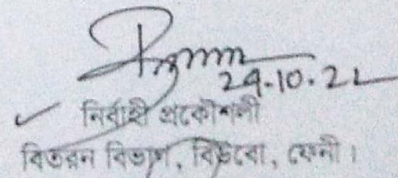 24.10.22
নির্বাহী প্রকৌশলী
বিতরন বিভাগ, বিউবো, ফেনী।